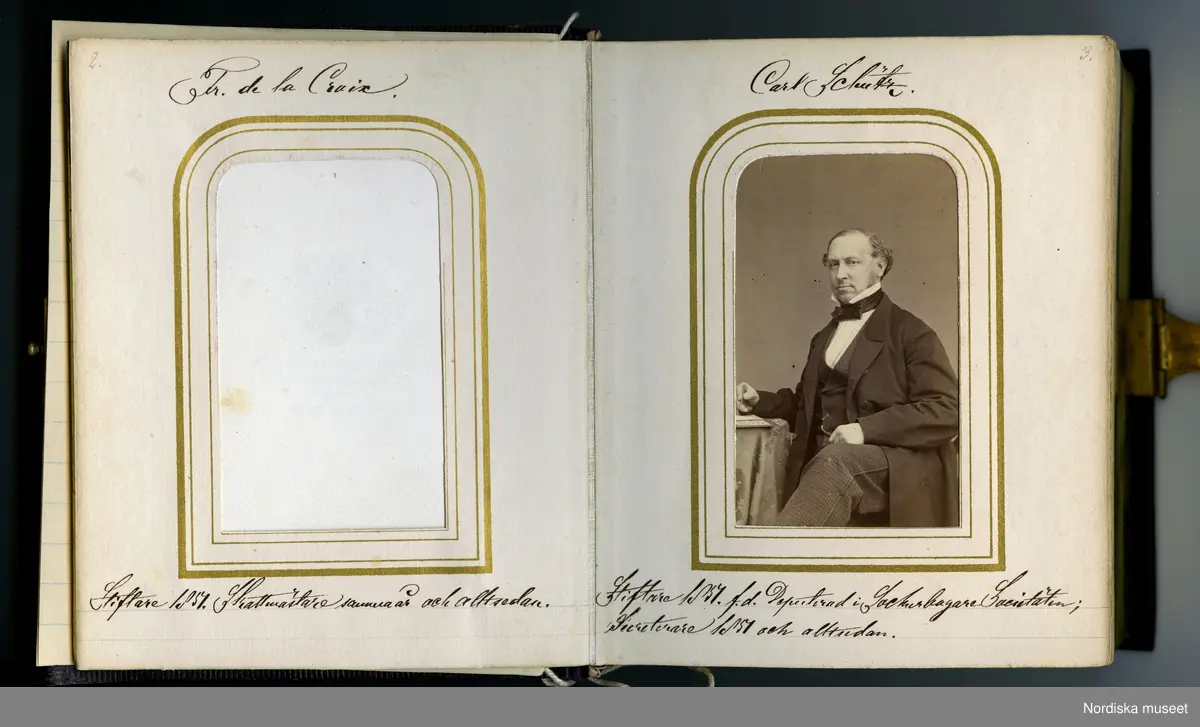 2.
Fr. de la Croix.
Stiftare 1857. Skattmästare samma år och altsedan.
3.
Carl Schütz.
Stiftare 1857. f.d. Deputerad i Sockerbagare Societäten;
Secreterare 1857 och altsedan.
Nordiska museet